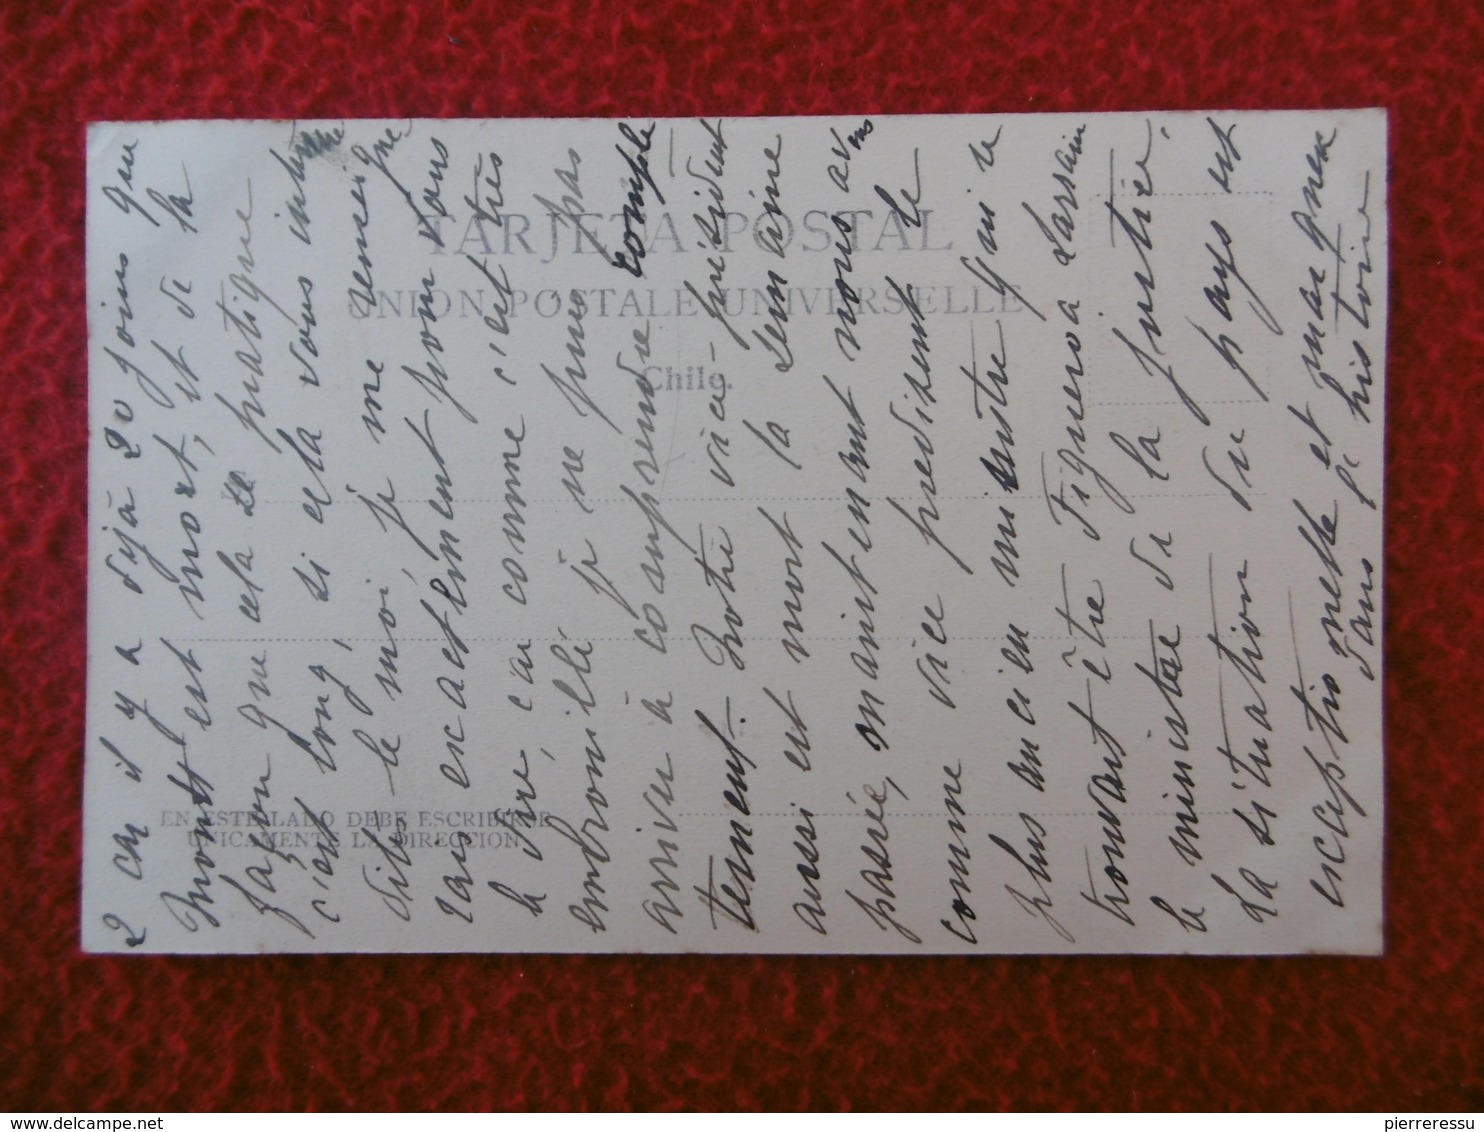 2 car il y a déjà 20 jours que
Montt est mort, et de la
façon que cela se pratique
c'est long, si cela vous
dit le moi, je me
exactement pour vous
le dire, car comme c'est très
embrouillé je ne puis pas
arriver à comprendre complè
tement. Notre vice-président
aussi est mort la semaine
passée, maintenant nous avons
comme vice président le
plus ancien ministre qui se
trouvant être Figueroa Larrain
le ministre de la justice.
La situation du pays est
exceptionnelle et marquera
dans l'histoire
TARJETA POSTAL
UNION POSTALE UNIVERSELLE
Chile.
EN ESTE LADO DEBE ESCRIBIRSE
UNICAMENTE LA DIRECCION
pierreressu